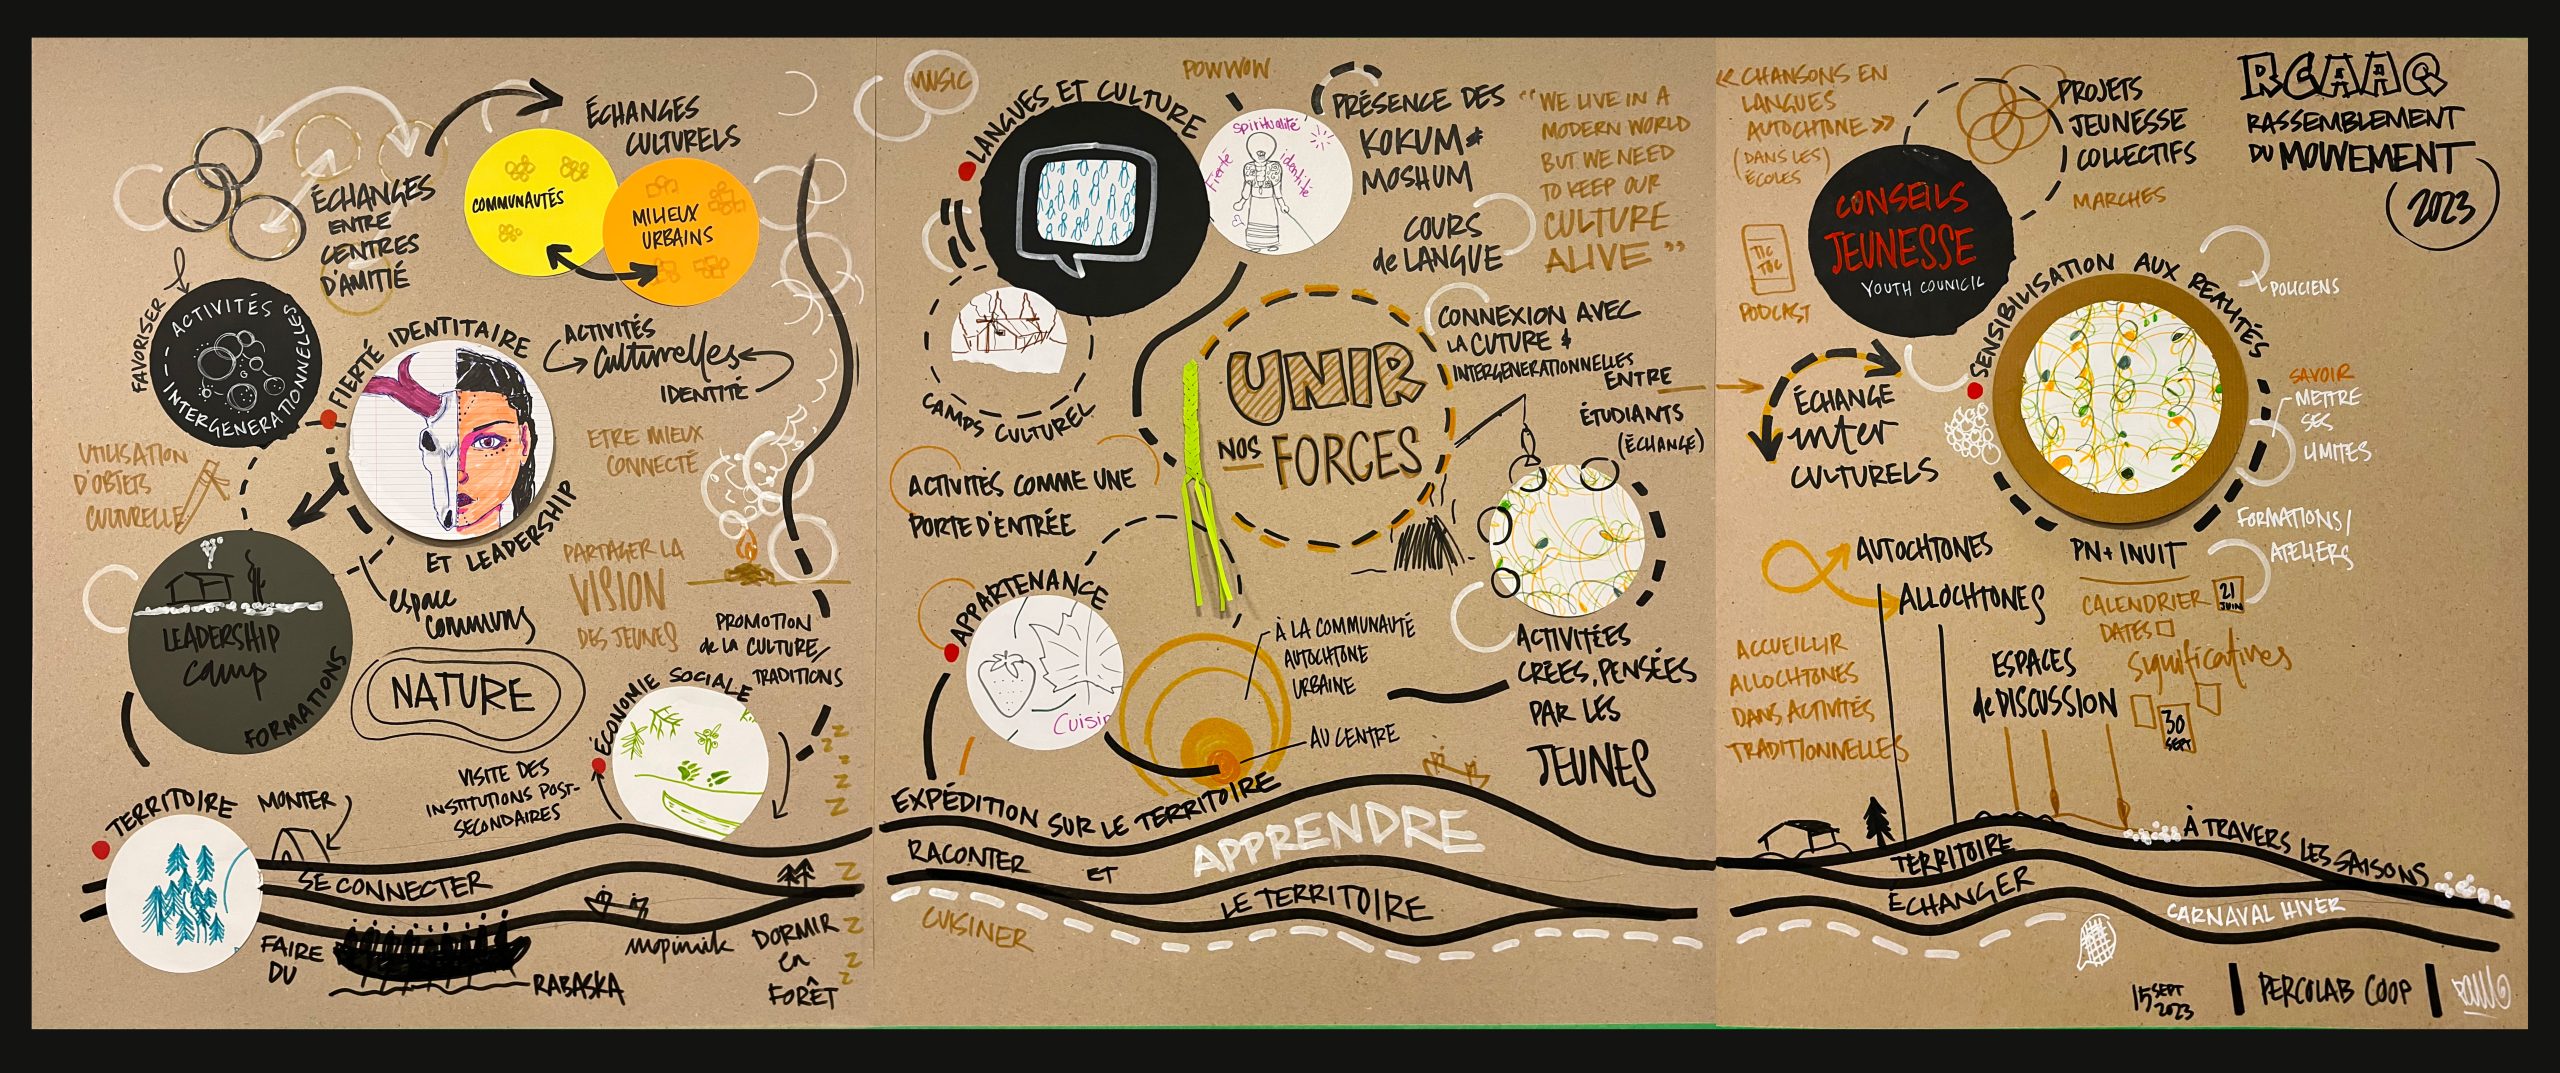 ÉCHANGES
CULTURELS
COMMUNAUTÉS
MILIEUX
URBAINS
ÉCHANGES
ENTRE
CENTRES
D'AMITIÉ
FAVORISER
ACTIVITÉS
INTERGENERATIONNELLES
FIERTÉ IDENTITAIRE
ET LEADERSHIP
ACTIVITÉS
Culturelles
IDENTITÉ
UTILISATION
D'OBJETS
CULTURELLE
ETRE MIEUX
CONNECTÉ
LEADERSHIP
Camp
FORMATIONS
espace
communs
PARTAGER LA
VISION
DES JEUNES
NATURE
PROMOTION
de la CULTURE/
TRADITIONS
ÉCONOMIE SOCIALE
VISITE DES
INSTITUTIONS POST-
SECONDAIRES
TERRITOIRE
MONTER
SE CONNECTER
FAIRE
DU
RABASKA
mopimik
DORMIR
en
FORÊT
Z
Z
Z
Z
Z
Z
Z
Z
Z
MUSIC
LANGUES ET CULTURE
POWWOW
Spiritualité
Fierté
identité
PRÉSENCE DES
KOKUM &
MOSHUM
COURS
de LANGUE
"WE LIVE IN A
MODERN WORLD
BUT WE NEED
TO KEEP OUR
CULTURE
ALIVE"
CAMPS CULTUREL
UNIR
NOS FORCES
CONNEXION AVEC
LA CUTURE &
INTERGENERATIONNELLES
ENTRE
ÉTUDIANTS
(ÉCHANGE)
ACTIVITÉS COMME UNE
PORTE D'ENTRÉE
APPARTENANCE
Cuisin
À LA COMMUNAUTÉ
AUTOCHTONE
URBAINE
AU CENTRE
ACTIVITÉES
CRÉES, PENSÉES
PAR LES
JEUNES
EXPÉDITION SUR LE TERRITOIRE
APPRENDRE
RACONTER ET
LE TERRITOIRE
CUISINER
« CHANSONS EN
LANGUES
AUTOCHTONE »
(DANS LES)
ÉCOLES
TIC
TOC
PODCAST
CONSEILS
JEUNESSE
YOUTH COUNICIL
PROJETS
JEUNESSE
COLLECTIFS
MARCHES
RCAAQ
RASSEMBLEMENT
DU MOUVEMENT
2023
SENSIBILISATION AUX REALITÉS
POLICIENS
SAVOIR
METTRE
SES
LIMITES
FORMATIONS/
ATELIERS
PN + INUIT
ÉCHANGE
inter
CULTURELS
AUTOCHTONES
ALLOCHTONES
ACCUEILLIR
ALLOCHTONES
DANS ACTIVITÉS
TRADITIONNELLES
CALENDRIER
DATES
significatives
21
JUIN
30
SEPT
ESPACES
de DISCUSSION
À TRAVERS LES SAISONS
TERRITOIRE
ÉCHANGER
CARNAVAL HIVER
15 SEPT
2023
PERCOLAB COOP